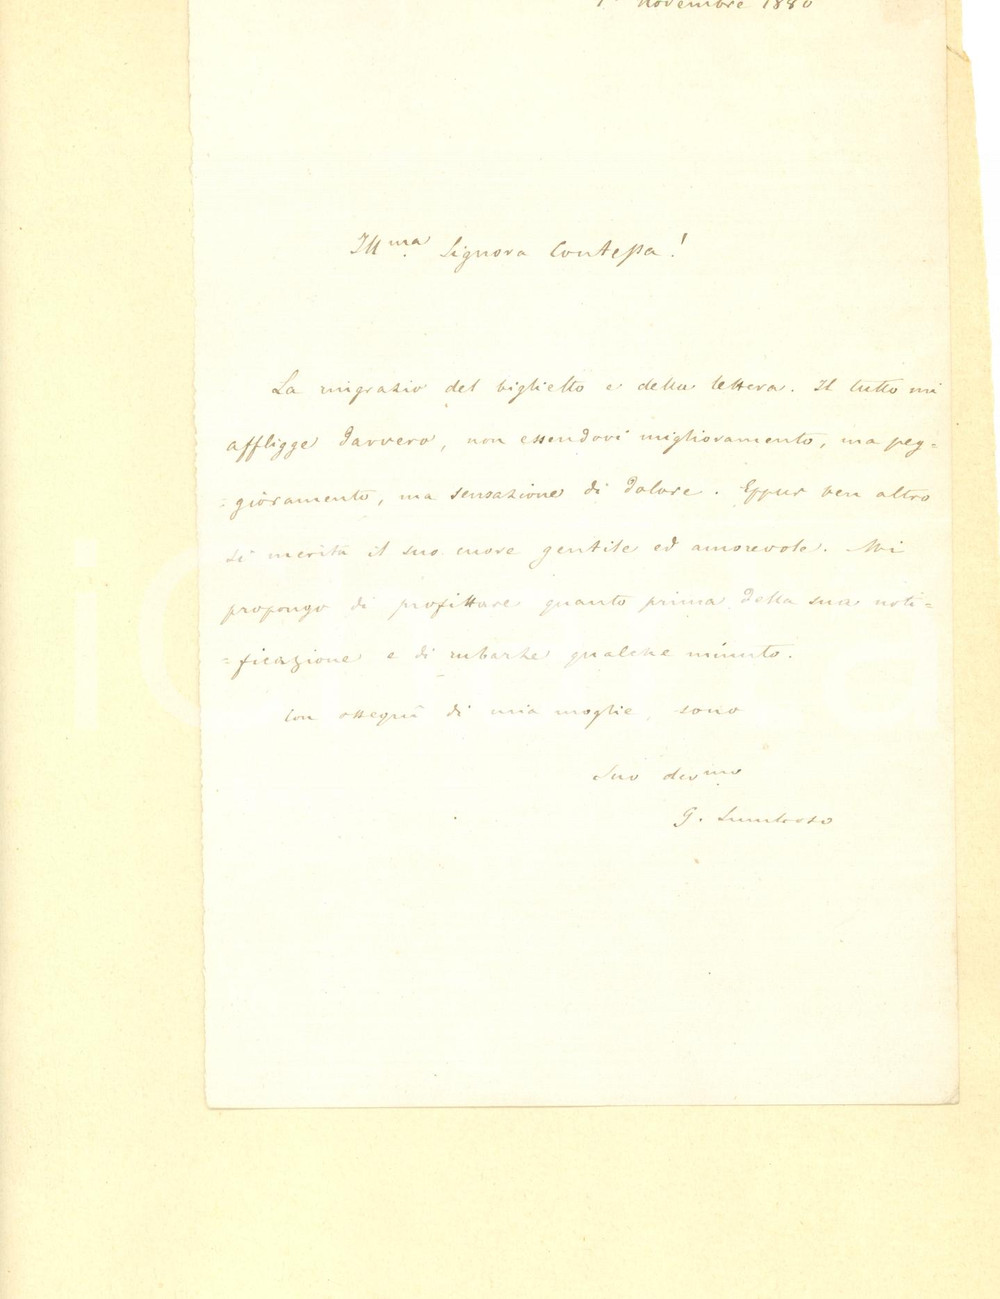 1º Novembre 1880
Illma Signora Contessa!
La ringrazio del biglietto e della lettera. Il tutto mi
affligge davvero, non essendovi miglioramento, ma peg=
=gioramento, ma sensazione di dolore. Eppur ben altro
si merita il suo cuore gentile ed amorevole. Mi
propongo di profittare quanto prima della sua noti=
=ficazione e di rubarle qualche minuto.
Con ossequi di mia moglie, sono
Suo devmo
G. Lumbroso